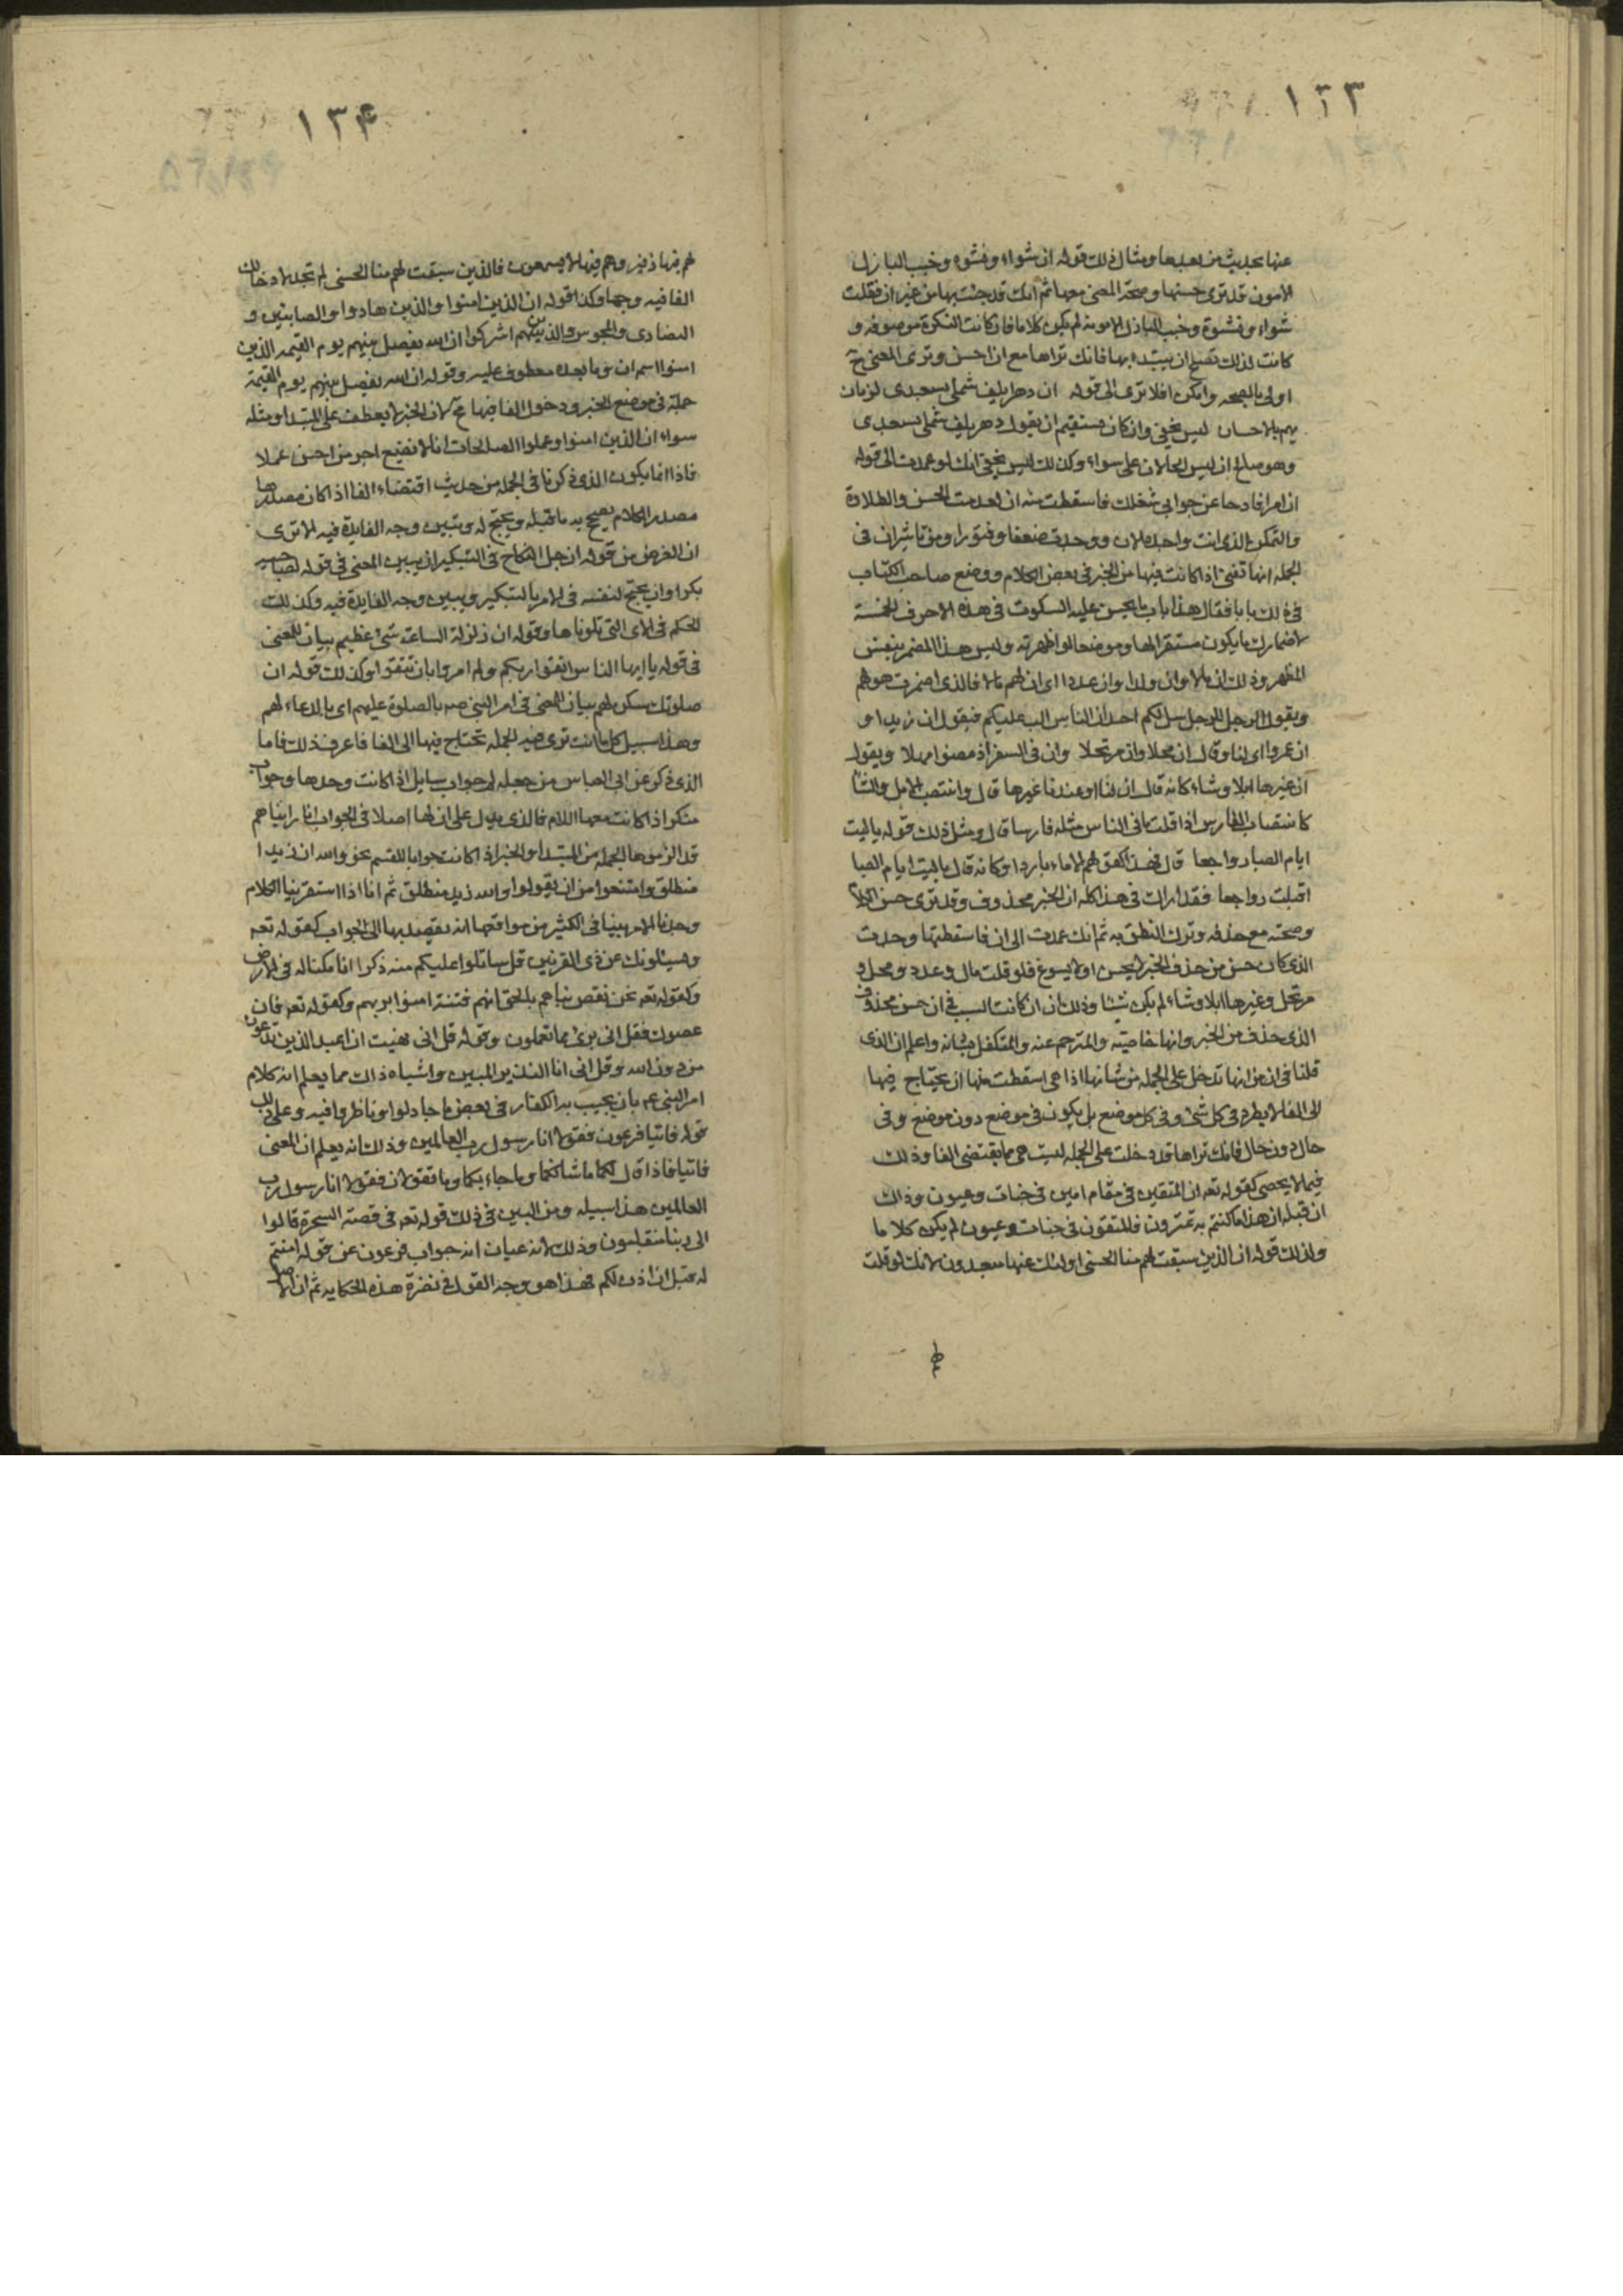 ١٣٣
عنها بحديث من بعدها ومثال ذلك قوله ان شواء ونشوة وخبب البازل
الامون قد ترى حسنها وصحة المعنى معها ثم انك قد جئت بها من غير ان فقلت
شواء ونشوة وخبب البازل الامون لم يكن كلاما فان كانت النكرة موصوفة و
كانت لذلك تصلح ان يبتداء بها فانك تراها مع ان احسن وترى المعنى ح
اولى بالصحه وامكن افلا ترى الى قوله ان دهرا يلف شملى بسعدى لزمان
يهم بالاحسان ليس يخفى وان كان مستقيم ان يقول دهر يلف شملى بسعدى
وهو صالح ان ليس الحالان على سواء وكذلك ليس يخفى انك لو عمدت الى قوله
ان امرا فادحا عن جوابى شغلك فاسقطت منه ان لعدمت الحسن والطلاوة
والتمكن الذى انت واجده الان ووجدت ضعفا وفتورا ومن تاثير ان فى
الجمله انها تغنى اذا كانت فيها من الخبر فى بعض الكلام ووضع صاحب الكتاب
فى ذلك بابا فقال هذا باب ما يحسن عليه السكوت فى هذه الاحرف الخمسة
لاضمارك ما يكون مستقرا لها وموضعا لو اظهرته وليس هذا المضمر بنفس
المظهر وذلك ان مالا وان ولدا وان عددا اى ان لهم مالا فالذى اضمرت هو لهم
ويقول الرجل للرجل هل لكم احد ان الناس الب عليكم فيقول ان زيدا و
ان عمروا اى لنا وقال ان محلا وان مرتحلا وان فى السفر اذ مضوا مهلا ويقول
ان غيرها ابلا وشاء كانه قال ان لنا او عندنا غيرها قال وانتصب الابل والشا
كانتصاب الفارس اذا قلت ما فى الناس مثله فارسا قال ومثل ذلك قوله يا ليت
ايام الصبا رواجعا قال فهذا كقولهم الا ماء باردا وكانه قال يا ليت ايام الصبا
اقبلت رواجعا فقد اراك فى هذا كله ان الخبر محذوف وقد ترى حسن الكلام
وصحته مع حذفه وترك النطق به ثم انك عمدت الى ان فاسقطتها وجدت
الذى كان حسن من حذف الخبر لا يحسن او لا يسوغ فلو قلت مال وعدد ومحل و
مرتحل وغيرها ابلا وشاء لم يكن شيئا وذلك ان ان كانت السبب فى ان حسن محذوف
الذى حذف من الخبر وانها خاضيته والمترجم عنه والمتكفل بشانه واعلم ان الذى
قلنا فى ان من انها تدخل على الجمله من شانها اذا هى اسقطت منها ان يحتاج فيها
الى الفا لا يطرد فى كل شئ وفى كل موضع بل يكون فى موضع دون موضع وفى
حال دون حال فانك تراها قد دخلت على الجمله ليست هى مما يقتضى الفا وذلك
فيما لا يحصى كقوله تعه ان المتقين فى مقام امين فى جنات وعيون وذاك
ان قبله ان هذا ما كنتم به تمترون فالمتقون فى جنات وعيون لم يكن كلا ما
وكذلك قوله ان الذين سبقت لهم منا الحسنى اولئك عنها مبعدون لانك لو قلت
١٣۴
لهم فيها زفير وهم فيها لا يسمعون فالذين سبقت لهم منا الحسنى لم تجد لادخالك
الفا فيه وجها وكذا قوله ان الذين امنوا والذين هادوا والصابئين و
النصارى والمجوس والذين اشركوا ان الله يفصل بينهم يوم القيمه الذين
امنوا اسم ان وما بعده معطوف عليه وقوله ان الله يفصل بينهم يوم القيمة
جملة فى موضع الخبر ودخول الفا فيها مح لان الخبر لا يعطف على المبتدا ومثله
سواء ان الذين امنوا وعملوا الصالحات انا لا نضيع اجر من احسن عملا
فاذا انما يكون الذى ذكرنا فى الجمله من حديث اقتضاء الفا اذا كان مصدرها
مصدر الكلام يصحح به ما قبله ويحتج له ويبين وجه الفايدة فيه الا ترى
ان الغرض من قوله ان جل النجاح فى التبكير ان يبين المعنى فى قوله لصاحبيه
بكرا وان يحتج لنفسه فى الامر بالتبكير ويبين وجه الفايدة فيه وكذلك
الحكم فى الاى التى تلوناها وقوله ان زلزلة الساعت شئ عظيم بيان للمعنى
فى قوله يا ايها الناس اتقوا ربكم ولم امروا بان تتقوا وكذلك قوله ان
صلوتك سكن لهم بيان للمعنى فى امر النبى صه بالصلوة عليهم اى بالدعاء لهم
وهذا سبيل كل ما انت ترى فيه الجمله تحتاج فيها الى الفا فاعرف ذلك فاما
الذى ذكر عن ابى العباس من جعله لها جواب سايل اذا كانت وحدها وجواب
منكر اذا كانت معها اللام فالذى يدل على ان لها اصلا فى الجواب انا راينا هم
قد الزموها الجمله من المبتدا والخبر اذا كانت جوابا للقسم نحو والله ان زيدا
منطلق وامتنعوا من ان يقولوا والله زيد منطلق ثم انا اذا استقرينا الكلام
وجدنا الامر بينا فى الكثير من مواقعها انه يقصد بها الى الجواب كقوله تعه
ويسئلونك عن ذى القرنين قل ساتلوا عليكم منه ذكرا انا مكنا له فى الارض
وكقوله تعه نحن نقص نباهم بالحق انهم فتنة امنوا بربهم وكقوله تعه فان
عصوك فقل انى برئ مما تعملون وقوله قل انى نهيت ان اعبد الذين تدعون
من دون الله وقل انى انا النذير المبين واشباه ذاك مما يعلم انه كلام
امر النبى عم بان يجيب به الكفار فى بعض ما جادلوا وناظروا فيه وعلى ذلك
قوله فاتيا فرعون فقولا انا رسول رب العالمين وذلك انه يعلم ان المعنى
فاتيا فاذا قال لكما ما شانكما وما جاء بكما وما تقولان فقولا انا رسول رب
العالمين هذا سبيله ومن البين فى ذلك قوله تعه فى قصة السحرة قالوا
الى ربنا منقلبون وذلك لانه عيان انه جواب فرعون عن قوله امنتم
له قبل ان اذن لكم فهذا هو وجه القول فى نضرة هذه الحكايه ثم ان الاصل